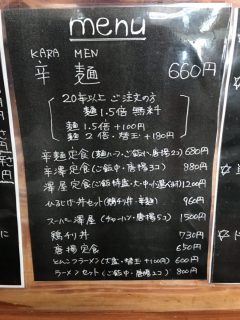 menu
KARA MEN
辛 麺 660円
20辛以上 ご注文の方
麺1.5倍 無料
麺1.5倍 +100円
麺2倍・替玉 +180円
辛麺定食(麺ハーフ・ご飯小・唐揚2コ) 680円
辛澤定食(ご飯中・唐揚3コ) 880円
澤屋定食 1200円
ひるどき丼セット(鶏チリ丼・辛麺) 960円
スーパー澤屋(チャーハン・唐揚5コ) 1500円
鶏チリ丼 730円
唐揚定食 650円
とんこつラーメン(大盛・替玉+100円) 600円
ラーメンセット(ご飯中・唐揚2コ) 800円